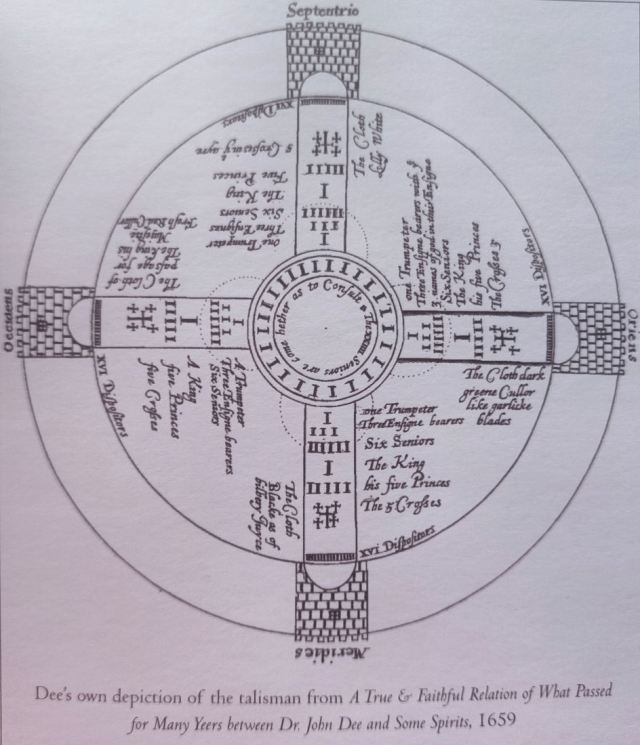 Septentrio
The Cloth
Lilly White
XVI Dispositors
5 Crosses
Five Princes
The King
Six Seniors
Three Ensignes
One Trumpeter
one Trumpeter
Three Ensigne bearers with
3 names of god in this Ensigne
Six Seniors
The King
his five Princes
The Crosses
XVI Dispositors
Oriens
The Cloth dark
greene Cullor
like garlicke
blades
The Cloth of
passage for
The King his
Fresh Red Culler
Occidens
XVI Dispositors
A Trumpeter
Three Ensigne bearers
Six Seniors
A King
five Princes
five Crosses
Seniors are come together as to Consult
one Trumpeter
Three Ensigne bearers
Six Seniors
The King
his five Princes
The 5 Crosses
XVI Dispositors
The Cloth
Blacke as of
bilbery Juyce
Meridies
Dee's own depiction of the talisman from A True & Faithful Relation of What Passed
for Many Yeers between Dr. John Dee and Some Spirits, 1659